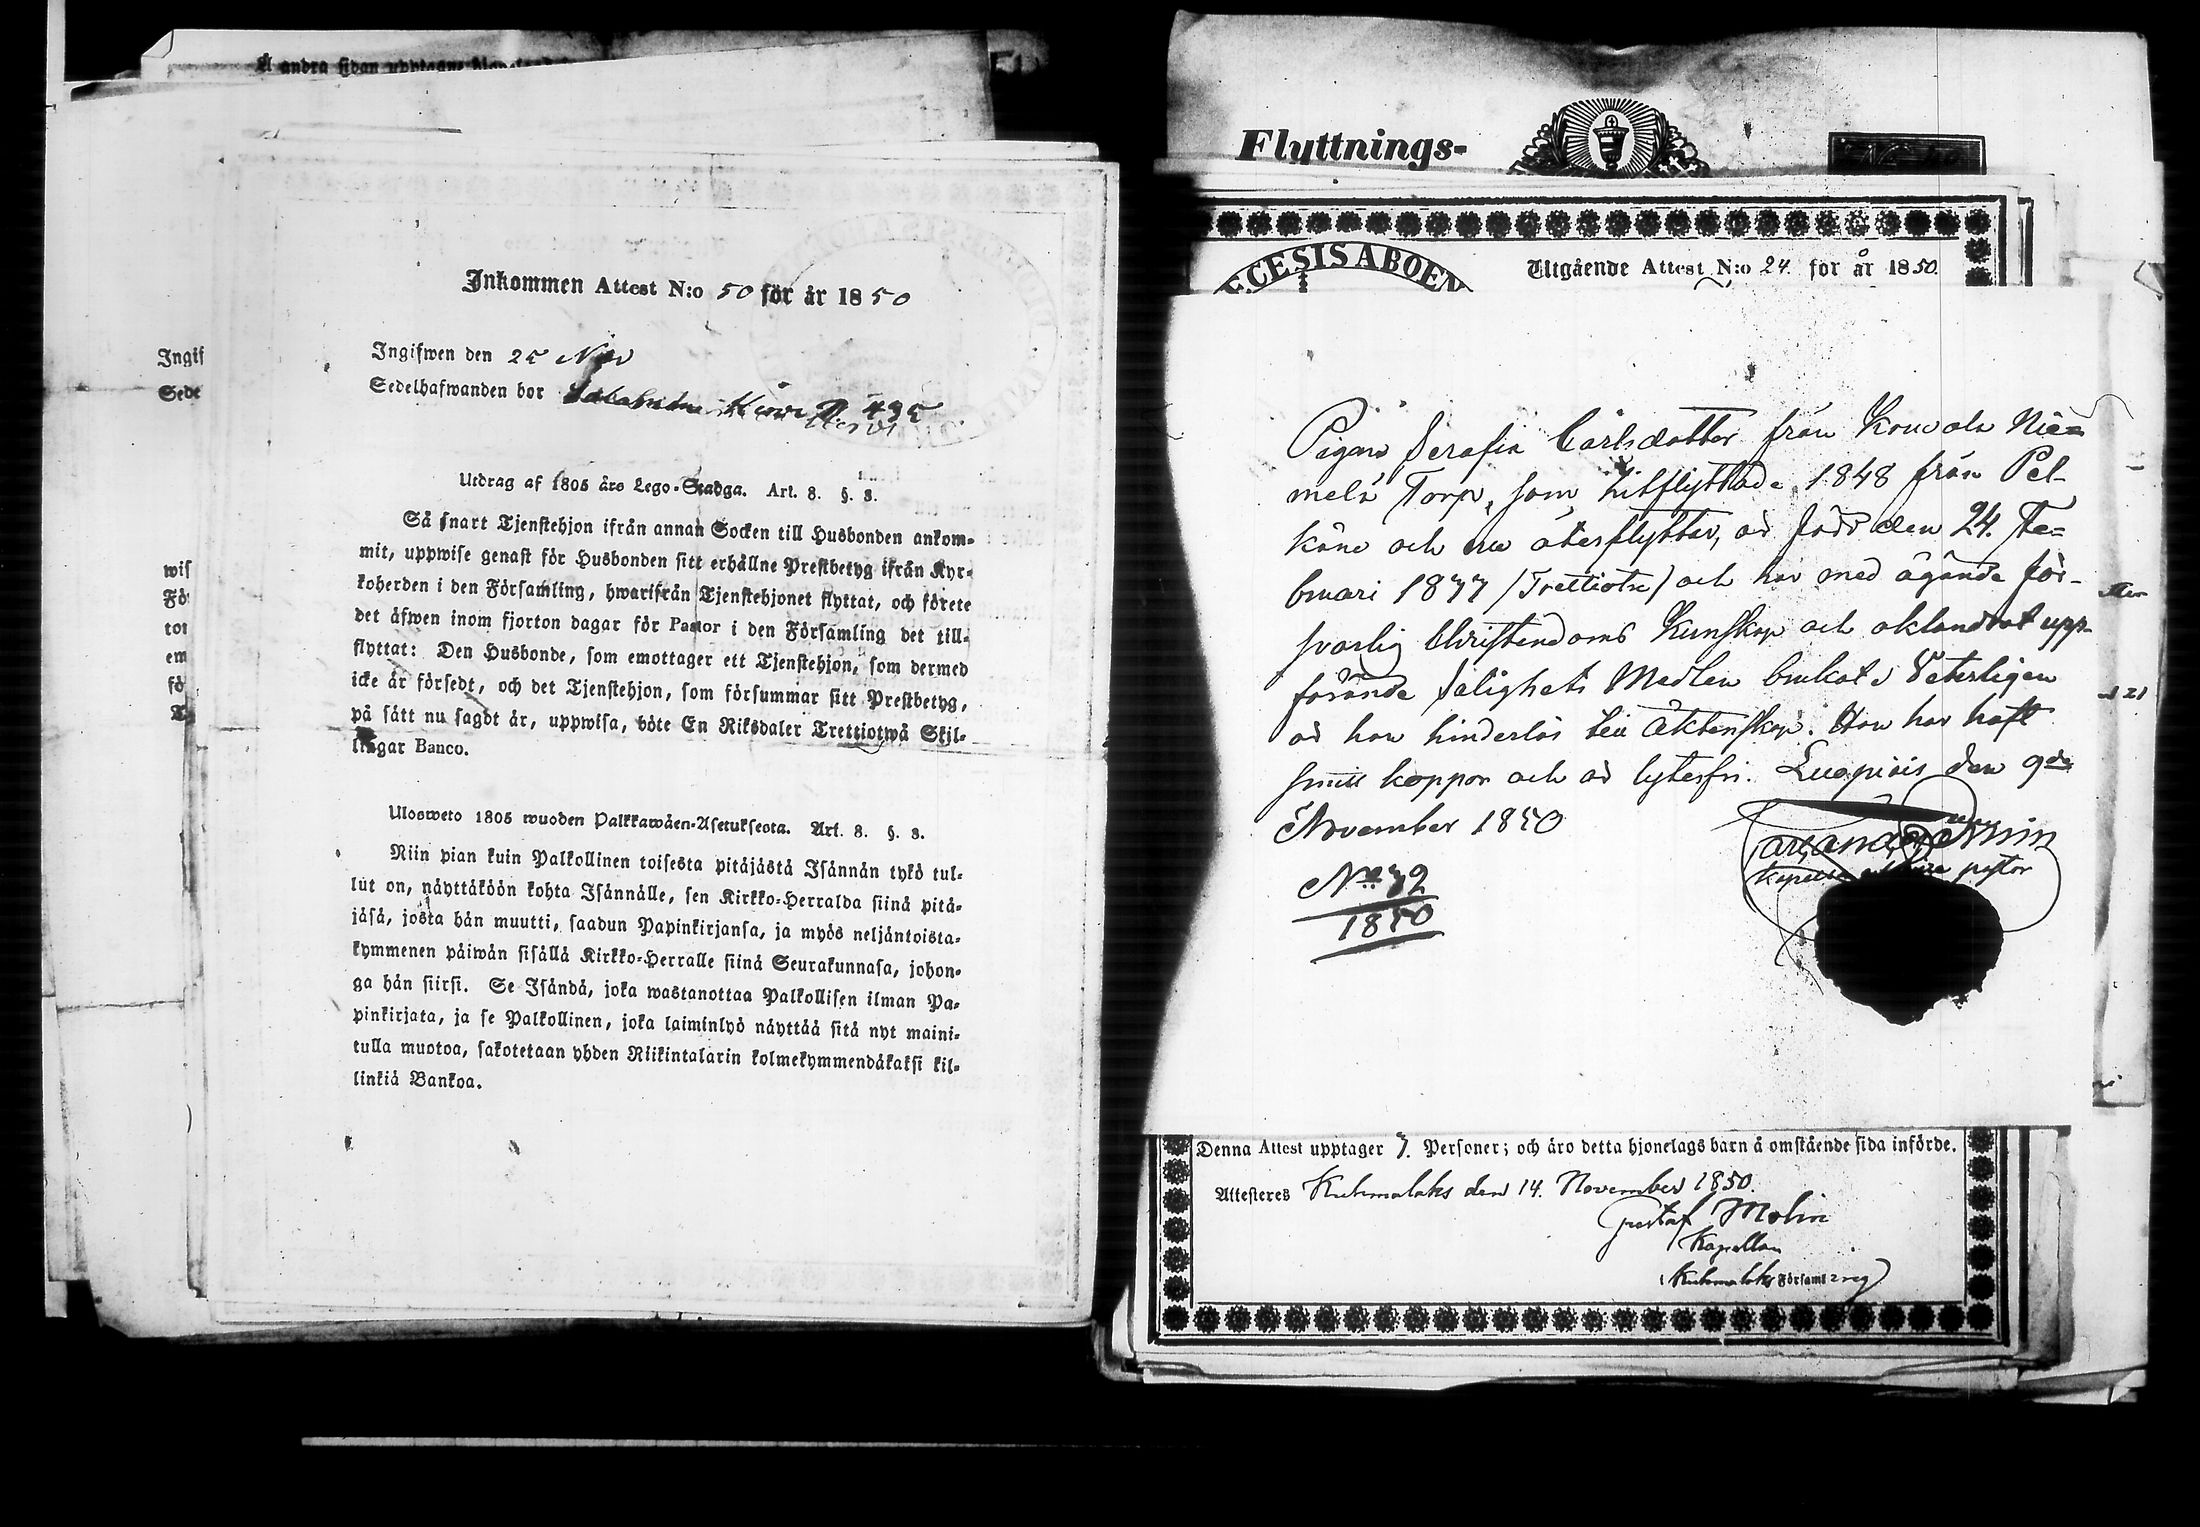 Å andra sidan upptagne
Inkommen Attest N:o 50 för år 1850
Ingif
Sede
Ingifwen den 25 Nov
Sedelhafwanden bor
Utdrag af 1805 års Lego-Stadga. Art. 8. §. 3.
Så snart Tjenstehjon ifrån annan Socken till Husbonden ankom-
mit, uppwise genast för Husbonden sitt erhållne Prestbetyg ifrån Kyr-
koherden i den Församling, hwarifrån Tjenstehjonet flyttat, och förete
det äfwen inom fjorton dagar för Pastor i den Församling det till-
flyttat: Den Husbonde, som emottager ett Tjenstehjon, som dermed
icke är försedt, och det Tjenstehjon, som försummar sitt Prestbetyg,
på sätt nu sagdt är, uppwisa, böte En Riksdaler Trettiotwå Skil-
lingar Banco.
wis
Fö
tor
em
fö
Ulosweto 1805 wuoden Palkkawäen-Asetuksesta. Art. 8. §. 3.
Niin pian kuin Palkollinen toisesta pitäjästä Isännän tykö tul-
lut on, näyttäköön kohta Isännälle, sen Kirkko-Herralda siinä pitä-
jäsä, josta hän muutti, saadun Papinkirjansa, ja myös neljäntoista-
kymmenen päiwän sisällä Kirkko-Herralle siinä Seurakunnasa, johon-
ga hän siirsi. Se Isändä, joka wastanottaa Palkollisen ilman Pa-
pinkirjata, ja se Palkollinen, joka laiminlyö näyttää sitä nyt maini-
tulla muotoa, sakotetaan yhden Riikintalarin kolmekymmendäkaksi kil-
linkiä Bankoa.
Flyttnings-
ECESIS ABOEN
Utgående Attest N:o 24 för år 1850.
Pigan Serafia Carlsdotter från Kouvola Nie-
melä Torp, som hitflyttade 1848 från Pel-
käne och nu återflyttar, är född den 24. Fe-
bruari 1837 /Trettiosju/ och har med ägande för-
svarlig Christendoms Kunskap och oklandrat upp-
förande Salighets Medlen brukat. Veterligen
är hon hinderlös till Äktenskap. Hon har haft
smitt koppor och är lytesfri. Luopiois den 9de
November 1850
No 32
1850
pastor
Denna Attest upptager 7. Personer; och äro detta hjonelags barn å omstående sida införde.
Attesteres Kuhmalaks den 14. November 1850.
Gustaf Molin
Kapellan
Kuhmalaks Församl